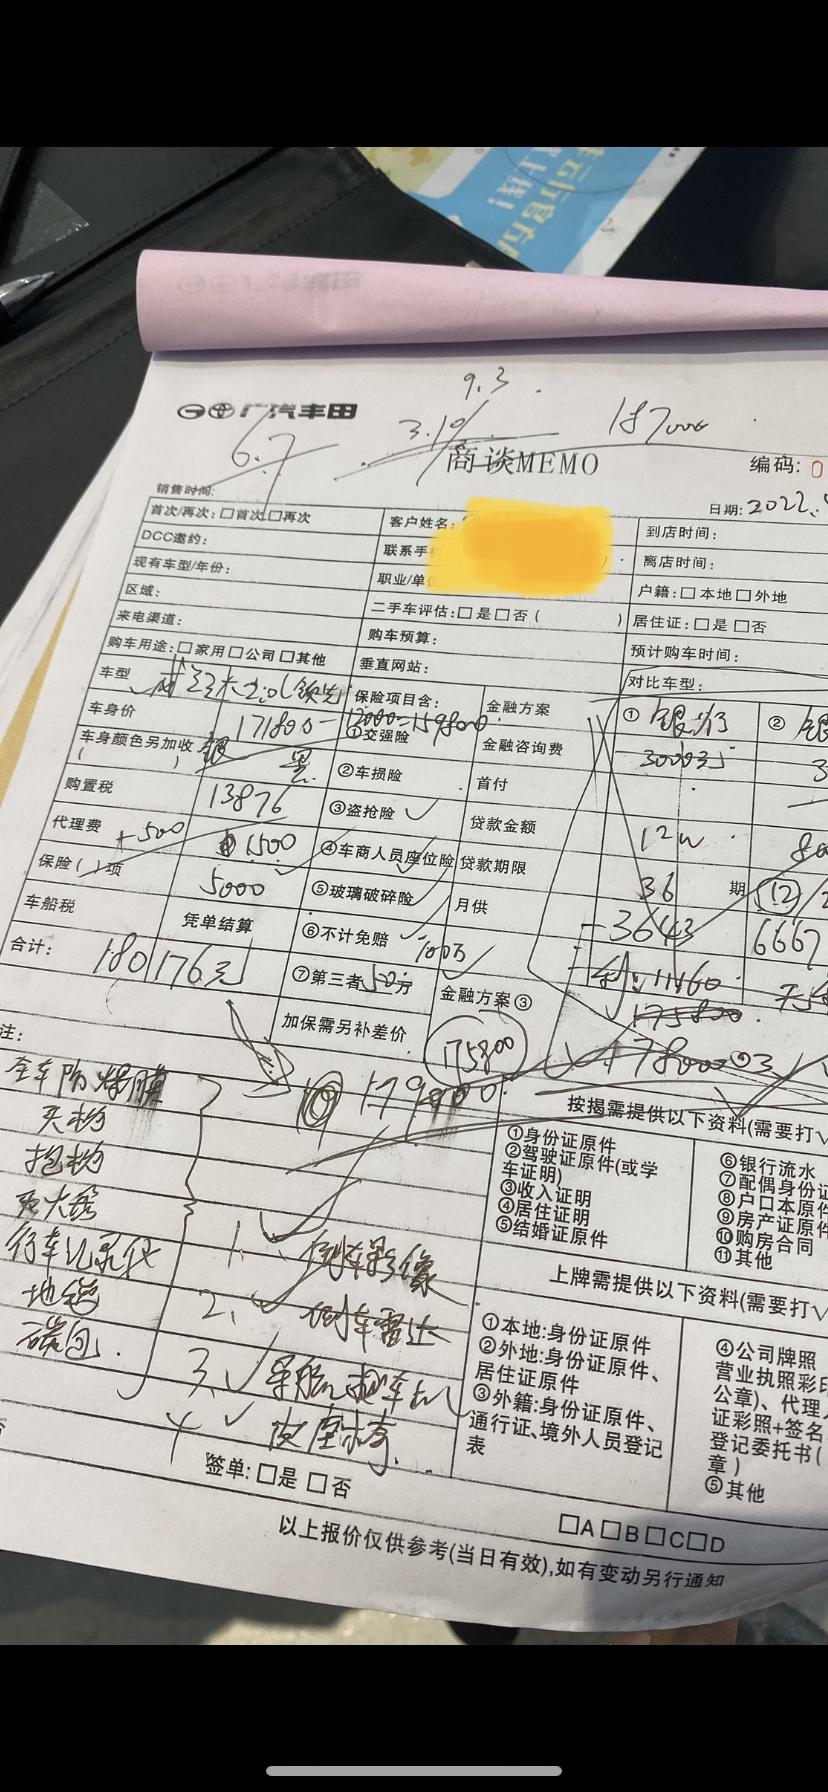 广汽丰田
9.3
6.7
3.10
187000
商谈MEMO
编码: 0
销售时间:
日期: 2022.
首次/再次: □首次 □再次
客户姓名:
到店时间:
DCC邀约:
联系手
离店时间:
现有车型/年份:
职业/单位:
户籍: □本地 □外地
区域:
二手车评估: □是 □否 ( )
居住证: □是 □否
来电渠道:
购车预算:
预计购车时间:
购车用途: □家用 □公司 □其他
垂直网站:
对比车型:
车型
2.0L 领先
保险项目含:
金融方案
① 银行
② 银
车身价
171800-12000=159800
①交强险
金融咨询费
3000元
车身颜色另加收
( )
银 黑
②车损险
首付
购置税
13876
③盗抢险 ✓
贷款金额
12W
代理费
+500
1500
④车商人员座位险
贷款期限
36 期
12
保险( )项
5000
⑤玻璃破碎险
月供
3643
6667
车船税
凭单结算
⑥不计免赔
100万
11160
合计:
180176元
⑦第三者50万
金融方案③
175800
加保需另补差价
175800
178000
179000
注:
全车防爆膜
头枕
抱枕
灭火器
行车记录仪
地毯
碳包
1、✓ 倒车影像
2、✓ 倒车雷达
3、✓ 导航
4 ✓ 皮座
按揭需提供以下资料(需要打√
①身份证原件
②驾驶证原件(或学
车证明)
③收入证明
④居住证明
⑤结婚证原件
⑥银行流水
⑦配偶身份证
⑧户口本原件
⑨房产证原件
⑩购房合同
⑪其他
上牌需提供以下资料(需要打√
①本地:身份证原件
②外地:身份证原件、
居住证原件
③外籍:身份证原件、
通行证、境外人员登记
表
④公司牌照
营业执照彩印
公章)、代理人
证彩照+签名
登记委托书(
章)
⑤其他
签单: □是 □否
□A □B □C □D
以上报价仅供参考(当日有效),如有变动另行通知